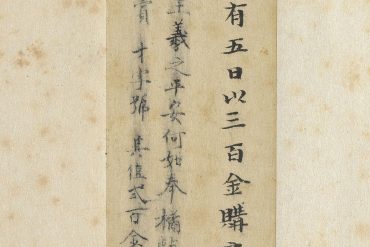 有五日以三百金購
王羲之平安何如奉橘
十字號 其值式百金